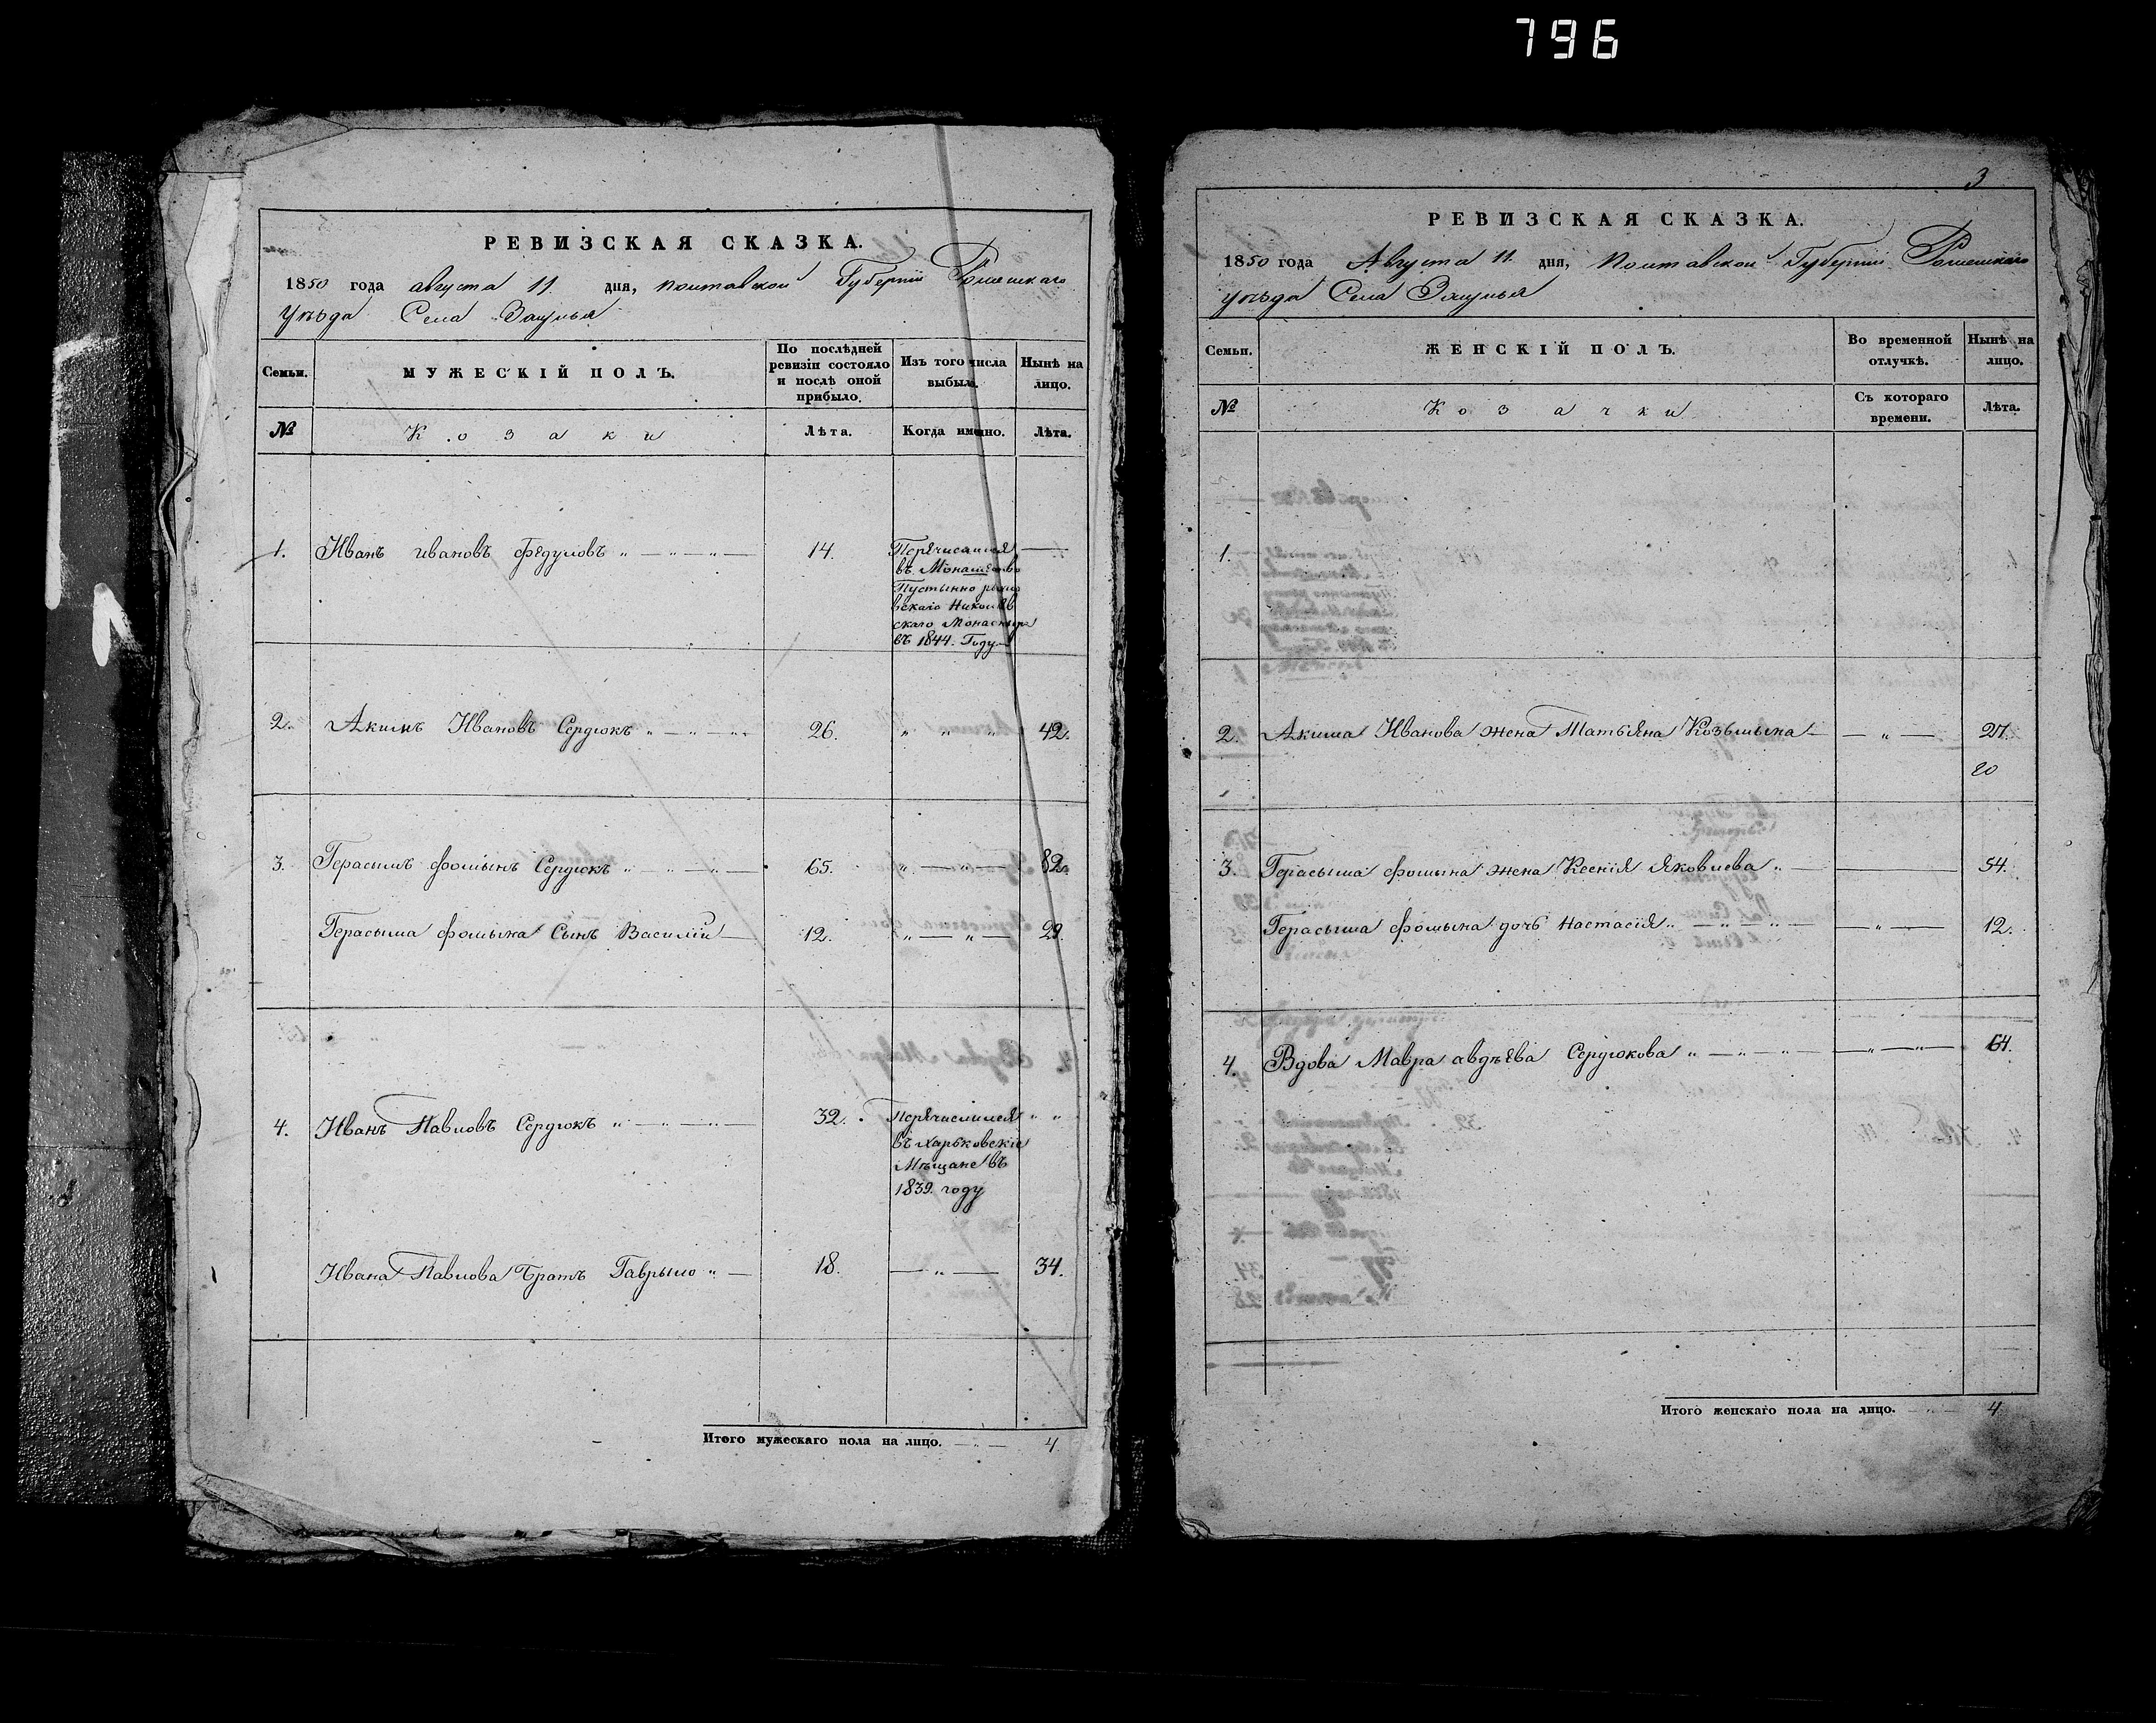 796
РЕВИЗСКАЯ СКАЗКА.
1850 года августа 11. дня, полтавской Губерніи Роменскаго
уѣзда Села
Семьи.
МУЖЕСКІЙ ПОЛЪ.
По послѣдней ревизіи состояло и послѣ оной прибыло.
Изъ того числа выбыло.
Нынѣ на лицо.
№
Козаки
Лѣта.
Когда именно.
Лѣта.
1. Иванъ ивановъ федуловъ „ — „ — „ — 14. Перечислился —
въ Монашество
Пустынно
вскаго Николаев
скаго Монастыря
въ 1844. Году
2. Акимъ Ивановъ Сердюкъ „ — „ — „ 26. „ „ „ 42.
3. Герасимъ фоминъ Сердюкъ „ — „ — „ — 65. „ — „ — 82.
Герасыма фомына Сынъ Василій — 12. „ — „ — 29.
4. Иванъ Павловъ Сердюкъ „ — „ — „ — 32. Перечислился „ „
въ Харьковскіе
Мѣщане въ
1839. году
Ивана Павлова Братъ Гаврыло „ — 18. — „ — 34.
Итого мужескаго пола на лицо. — „ — 4
3
РЕВИЗСКАЯ СКАЗКА.
1850 года Августа 11. дня, Полтавской Губерніи Роменскаго
уѣзда Села
Семьи.
ЖЕНСКІЙ ПОЛЪ.
Во временной отлучкѣ.
Нынѣ на лицо.
№
Козачки
Съ котораго времени.
Лѣта.
1.
2. Акима Иванова жена Татьяна Козьмына — — „ — 27.
20
3. Герасыма фомына жена Ксенія Яковлева „ — — 54.
Герасыма фомына дочь Настасія „ — „ — „ — — „ — 12.
4. Вдова Мавра авдѣева Сердюкова „ — „ — „ — — „ — „ — 64.
Итого женскаго пола на лицо. — „ — 4